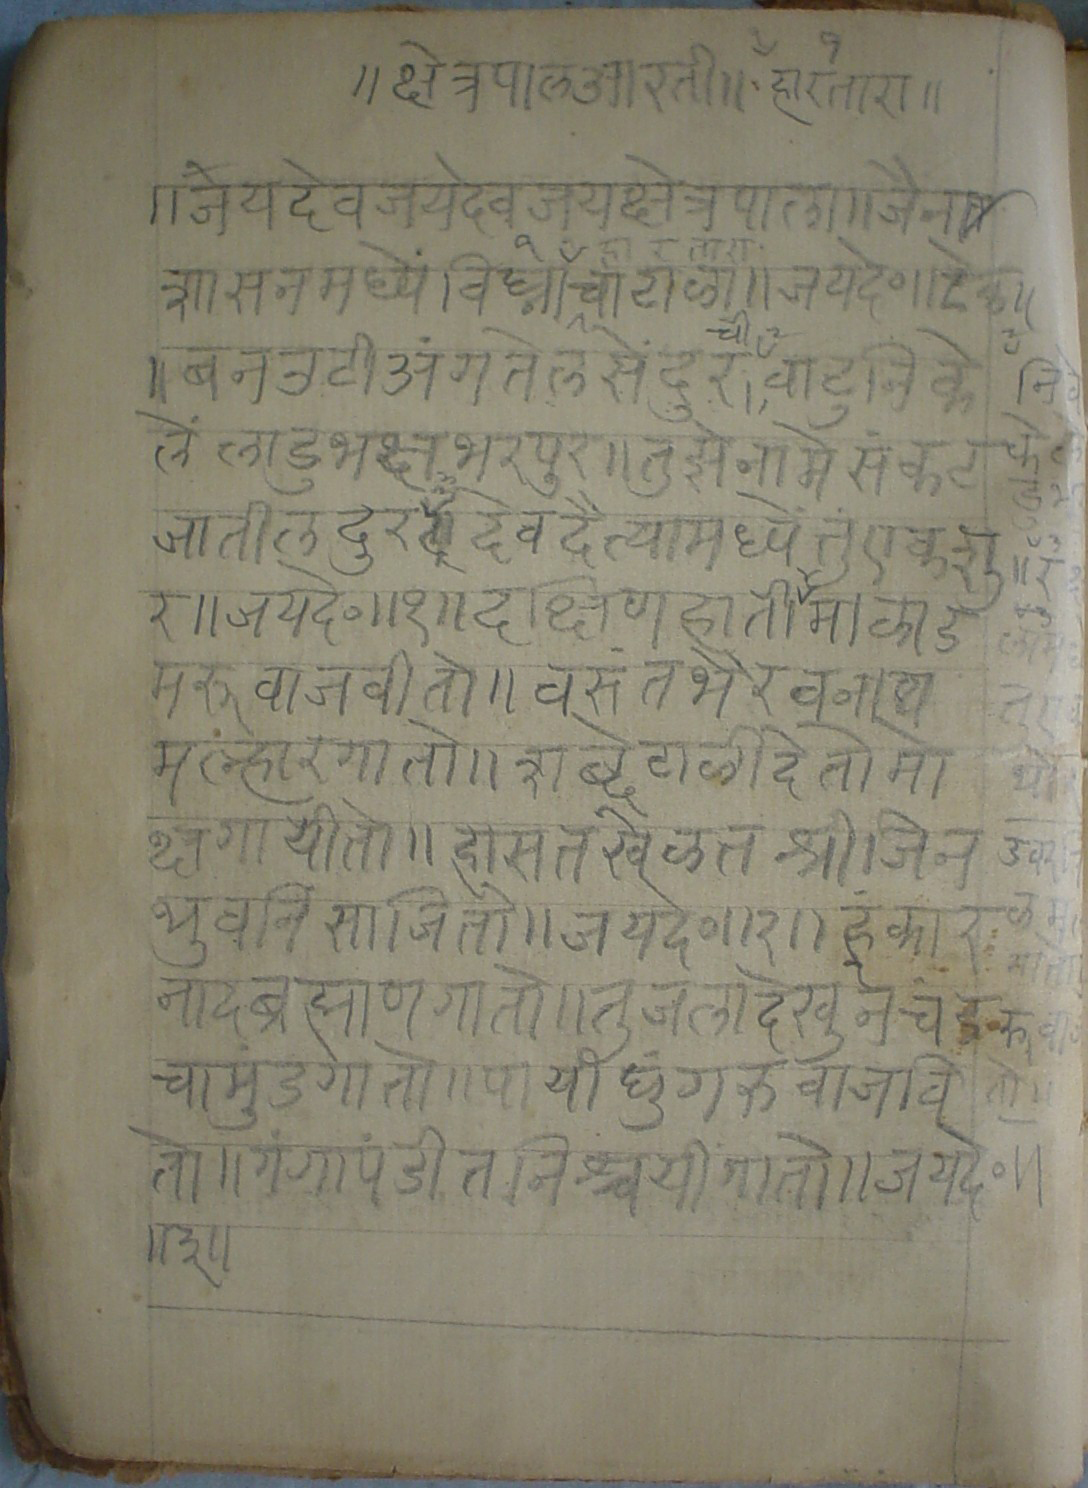 ॥क्षेत्रपालआरती॥ हारतारा॥
॥जेयदेवजयदेवजयक्षेत्रपाला॥जैना
शासनमध्यें विघ्नांचाटाळा॥जयदे०॥टेक॥
॥बनउटीअंगतेलसेंदुर॥वाटुनिके
लें लाडुभक्षभरपुर॥तुझेनामे संकट
जातील दुर देवदैत्यामध्यें तुं एकशु
र॥जयदे०॥१॥दक्षिण हाती माळाड
मरूवाजवीतो॥वसंतभैरवनाद्य
मल्हारगातो॥शब्देटाळीदेतोमो
क्षगायीतो॥हासतखेळत श्रीजिन
भुवनि साजितो॥जयदे०॥२॥हुंकार
नादब्रह्माणगातो॥तुजलादेखुन चंड
चामुंडगातो॥पायी घुंगरूवाजवि
तो॥गंगापंडीत निश्चयींगातो॥जयदे०॥
॥३॥